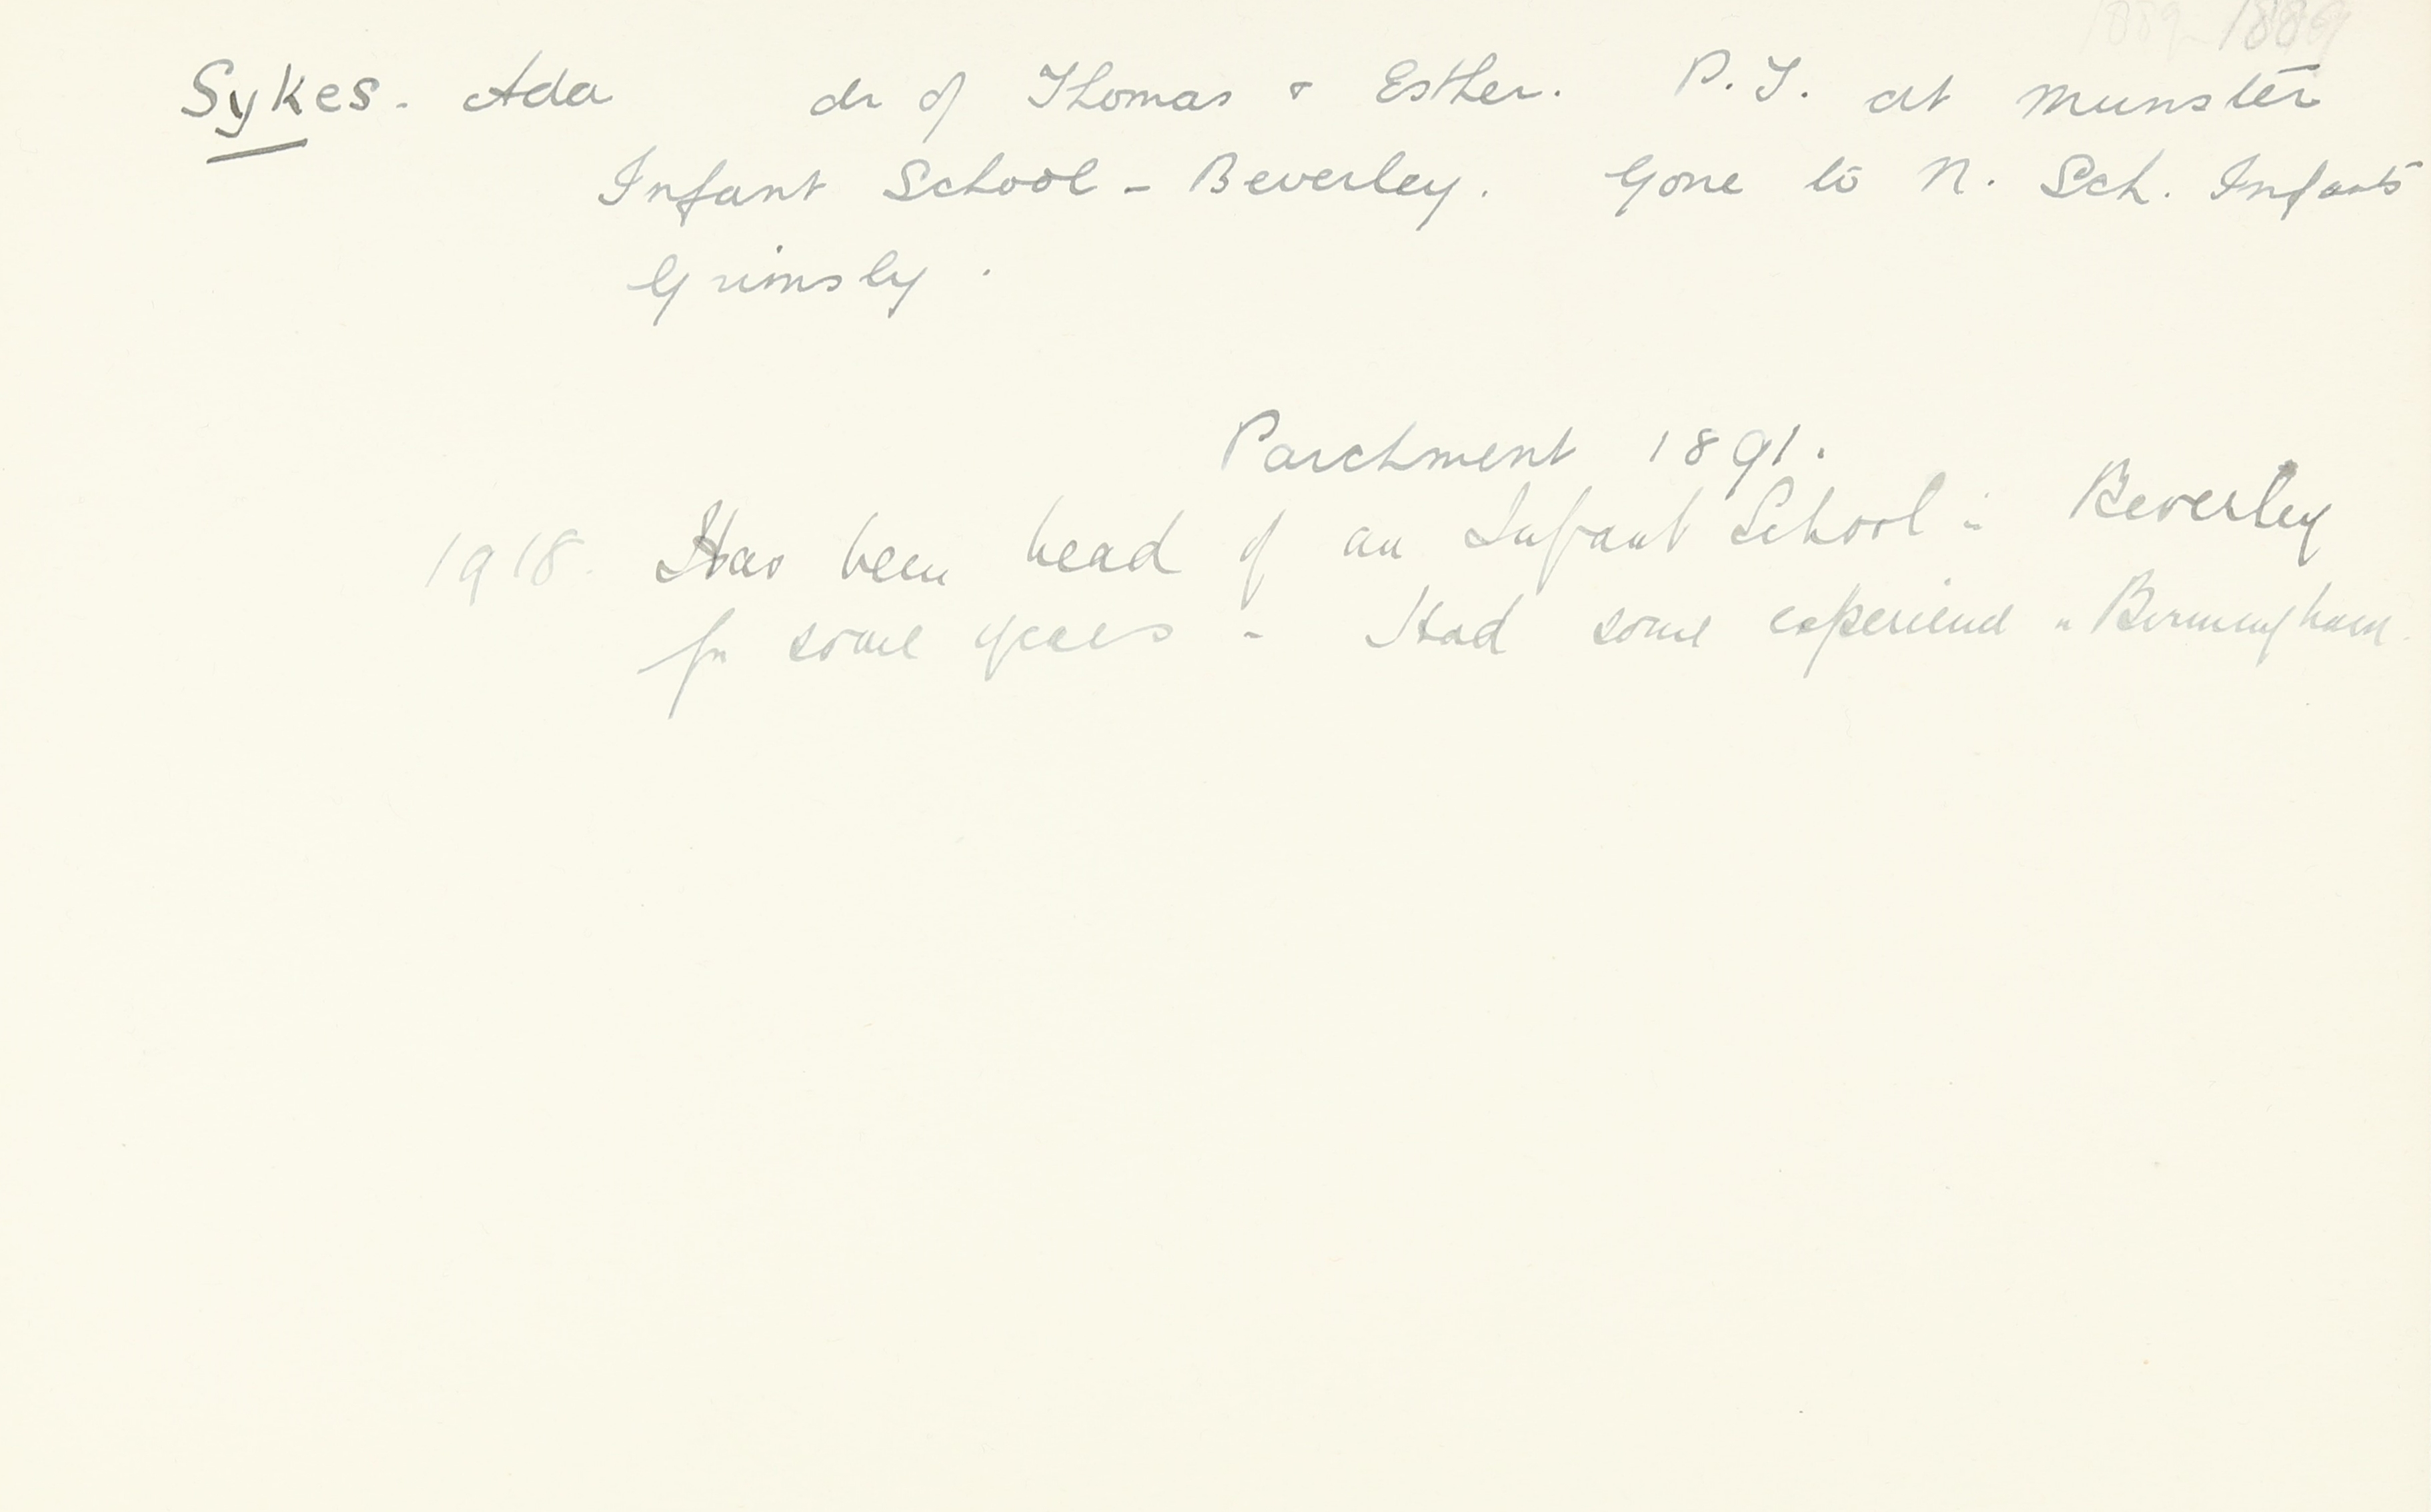 1889
Sykes. Ada dr of Thomas & Esther. P.T. at Munster
Infant School - Beverley. Gone to N. Sch. Infants
Grimsby.
Parchment 1891.
1918. Has been head of an Infant School in Beverley
for some years - Had some experience in Birmingham.